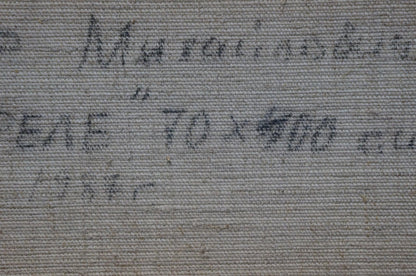 Р Михайлович
РЕЛЕ" 70 x 100 см
1987 г